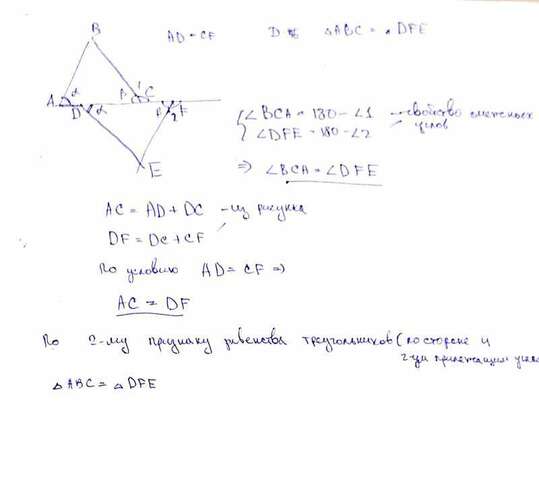 B
AD = CF D ΔABC = ΔDFE
A α D α β 1 C β 2 F
E
∠BCA = 180 - ∠1 - свойство смежных
∠DFE = 180 - ∠2 углов
=> ∠BCA = ∠DFE
AC = AD + DC - из рисунка
DF = DC + CF
По условию AD = CF =>
AC = DF
По 2-му признаку равенства треугольников (по стороне и
2-ум прилежащим угла
ΔABC = ΔDFE